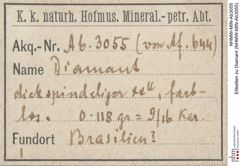 K. k. naturh. Hofmus. Mineral.-petr. Abt.
Akq.-Nr. Ab. 3055 (von Af. 644)
Name Diamant
dickspindeliger xall, farb-
los. 0.118 gr = 9/16 Kar.
Fundort Brasilien?
Etiketten zu Diamant (NHMW-MIN-Ab3055)
NHMW-MIN-Ab3055
nhm